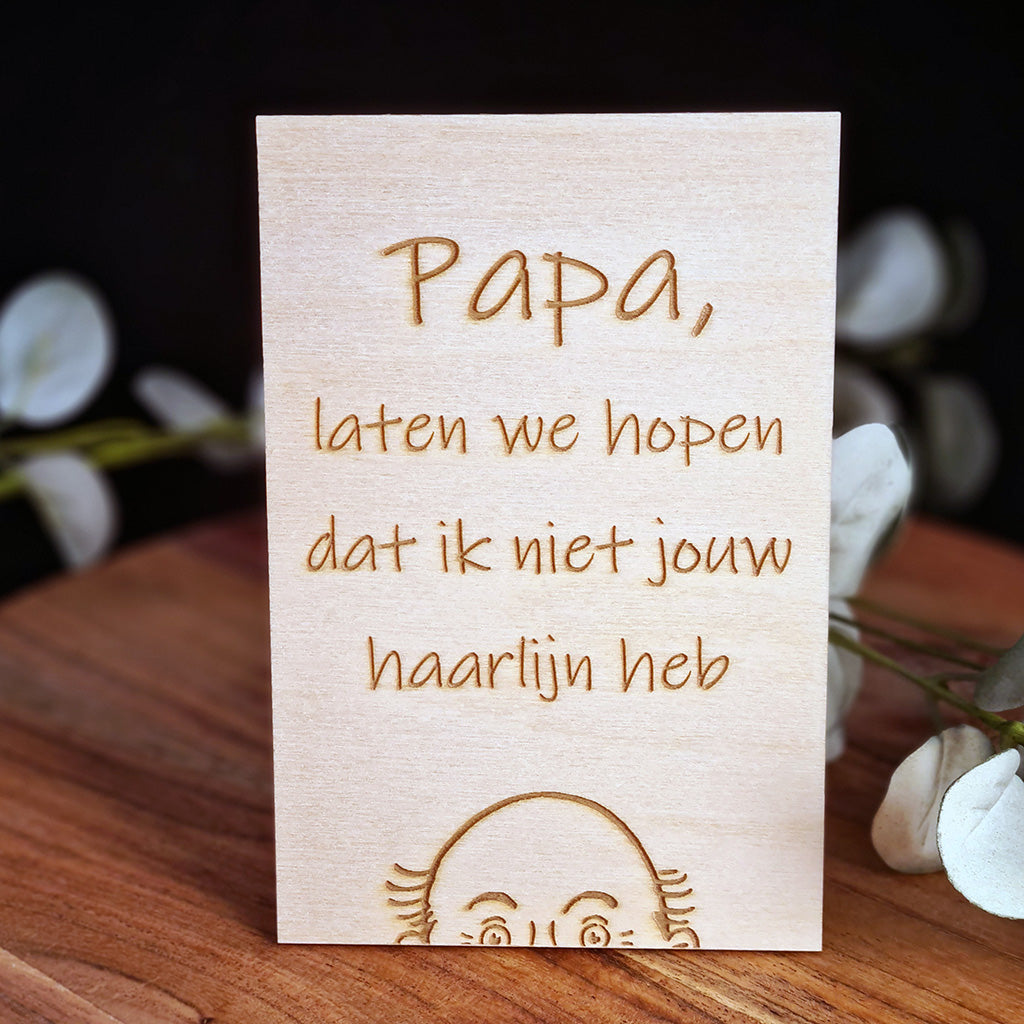 Papa,
laten we hopen
dat ik niet jouw
haarlijn heb